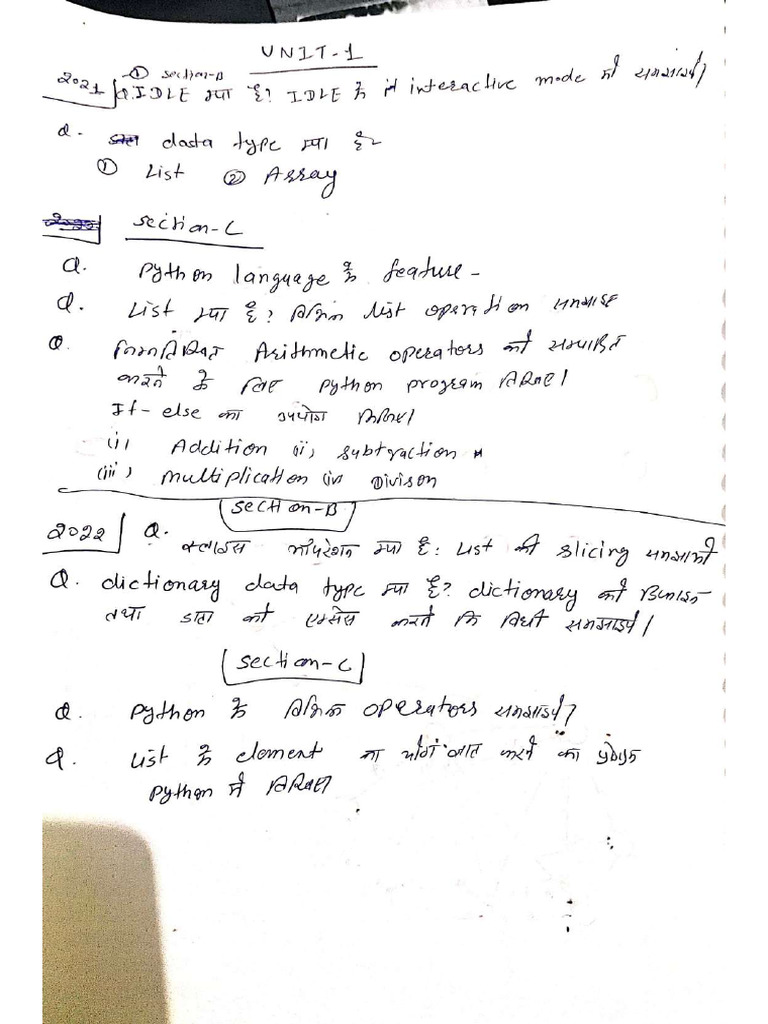 UNIT-1
① Section-B
2021 Q. IDLE क्या है? IDLE के interactive mode को समझाइये।
Q. data type क्या है
① List ② Array
Section-C
Q. Python language के feature -
Q. List क्या है? विभिन्न list operation समझाइए
Q. निम्नलिखित Arithmetic operators को सम्पादित
करने के लिए python program लिखिए।
If-else का उपयोग किजिए।
(i) Addition (ii) subtraction
(iii) multiplication (iv Divison
Section-B
2022 Q. स्लाइस ऑपरेशन क्या है: List की slicing समझाओ
Q. dictionary data type क्या है? dictionary को
तथा डाटा को एक्सेस करने कि विधी समझाइये।
Section-C
Q. Python के विभिन्न operators समझाइये?
Q. List के element का योग ज्ञात करने का प्रोग्राम
Python में लिखिए